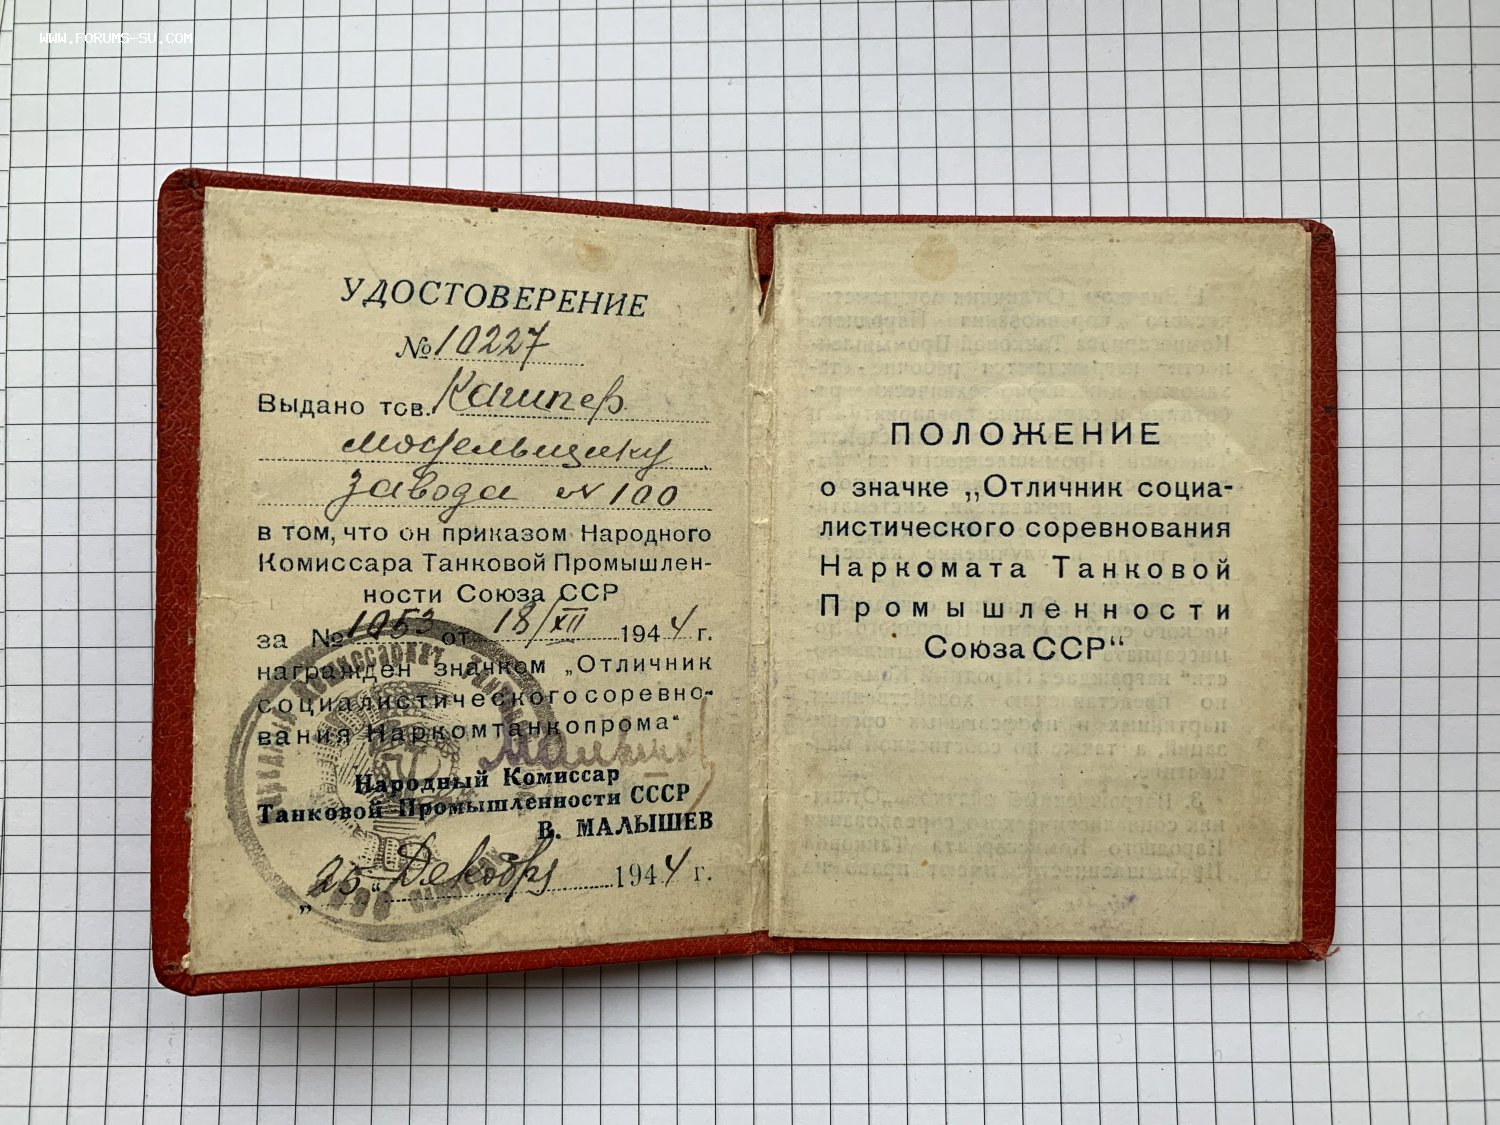 WWW.FORUMS-SU.COM
УДОСТОВЕРЕНИЕ
№ 10227
Выдано тов.
модельщику
завода № 100
в том, что он приказом Народного
Комиссара Танковой Промышлен-
ности Союза ССР
за № 1053 от 18/XII 1944 г.
награжден значком „Отличник
социалистического соревно-
вания Наркомтанкопрома“
Народный Комиссар
Танковой Промышленности СССР
В. МАЛЫШЕВ
„25“ Декабря 1944 г.
ПОЛОЖЕНИЕ
о значке „Отличник социа-
листического соревнования
Наркомата Танковой
Промышленности
Союза ССР“